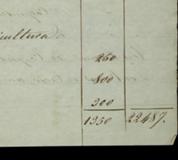 icultura
250
800
300
1350 22487.